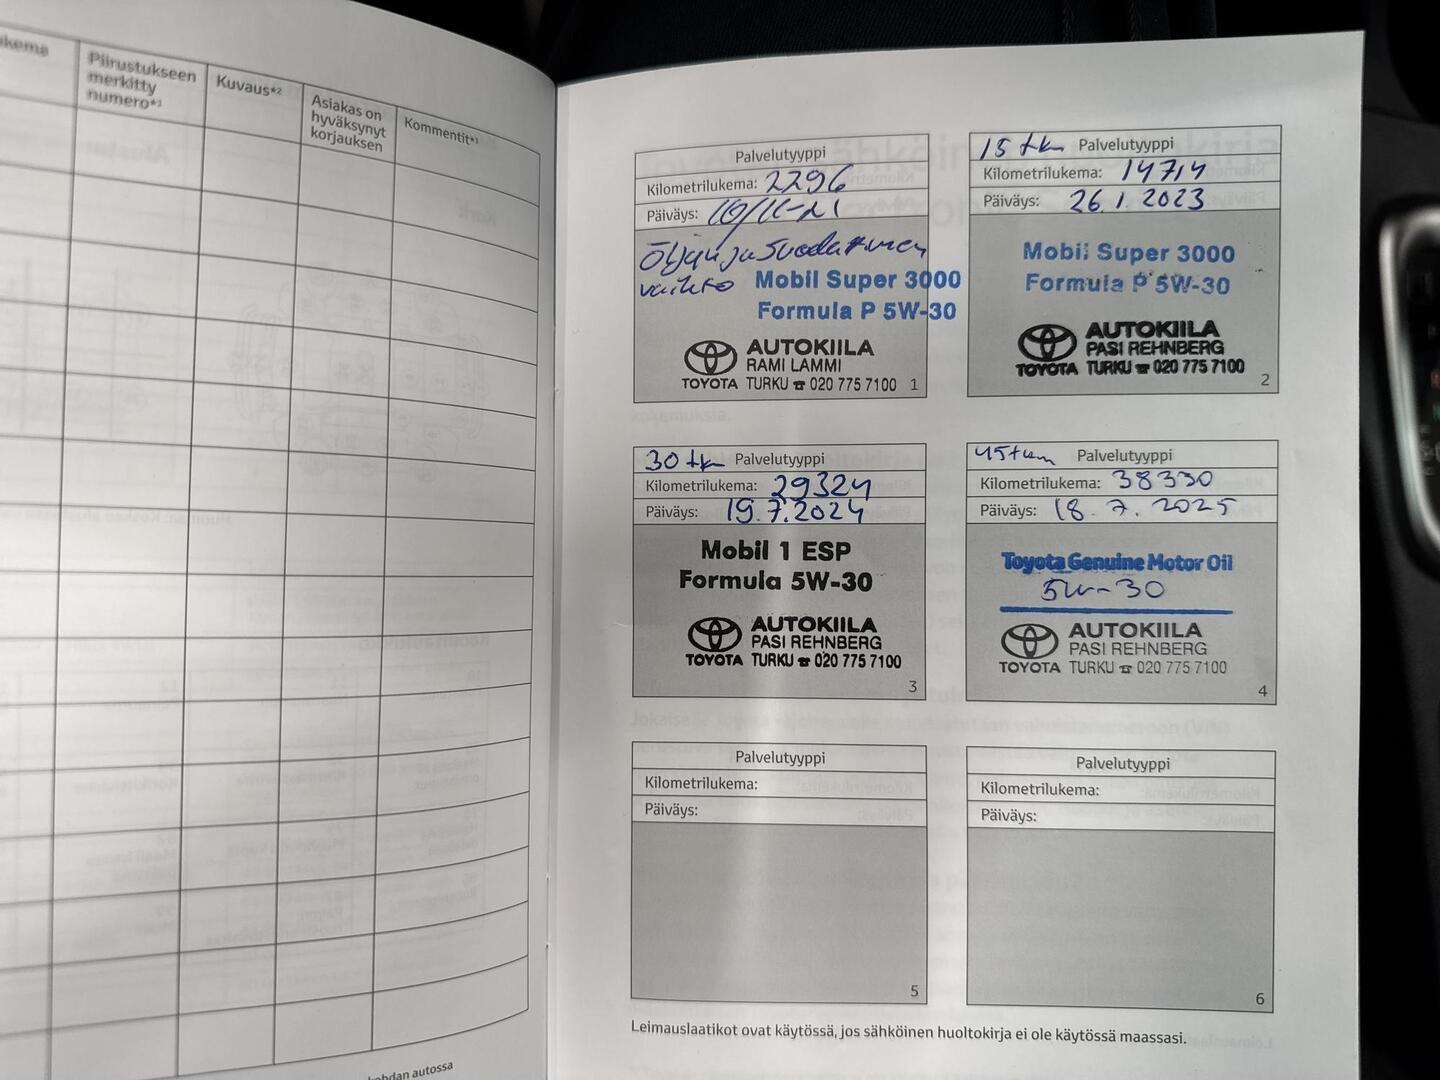 Piirustukseen
merkitty
numero*¹
Kuvaus*²
Asiakas on
hyväksynyt
korjauksen
Kommentit*³
kohdan autossa
Palvelutyyppi
Kilometrilukema: 2296
Päiväys: 10/11-21
Öljyn ja Suodattimen
vaihto
Mobil Super 3000
Formula P 5W-30
AUTOKIILA
RAMI LAMMI
TOYOTA TURKU ☎ 020 775 7100
1
15 tkm Palvelutyyppi
Kilometrilukema: 14714
Päiväys: 26.1.2023
Mobil Super 3000
Formula P 5W-30
AUTOKIILA
PASI REHNBERG
TOYOTA TURKU ☎ 020 775 7100
2
30 tkm Palvelutyyppi
Kilometrilukema: 29324
Päiväys: 19.7.2024
Mobil 1 ESP
Formula 5W-30
AUTOKIILA
PASI REHNBERG
TOYOTA TURKU ☎ 020 775 7100
3
45tkm Palvelutyyppi
Kilometrilukema: 38330
Päiväys: 18.7.2025
Toyota Genuine Motor Oil
5W-30
AUTOKIILA
PASI REHNBERG
TOYOTA TURKU ☎ 020 775 7100
4
Palvelutyyppi
Kilometrilukema:
Päiväys:
5
Palvelutyyppi
Kilometrilukema:
Päiväys:
6
Leimauslaatikot ovat käytössä, jos sähköinen huoltokirja ei ole käytössä maassasi.